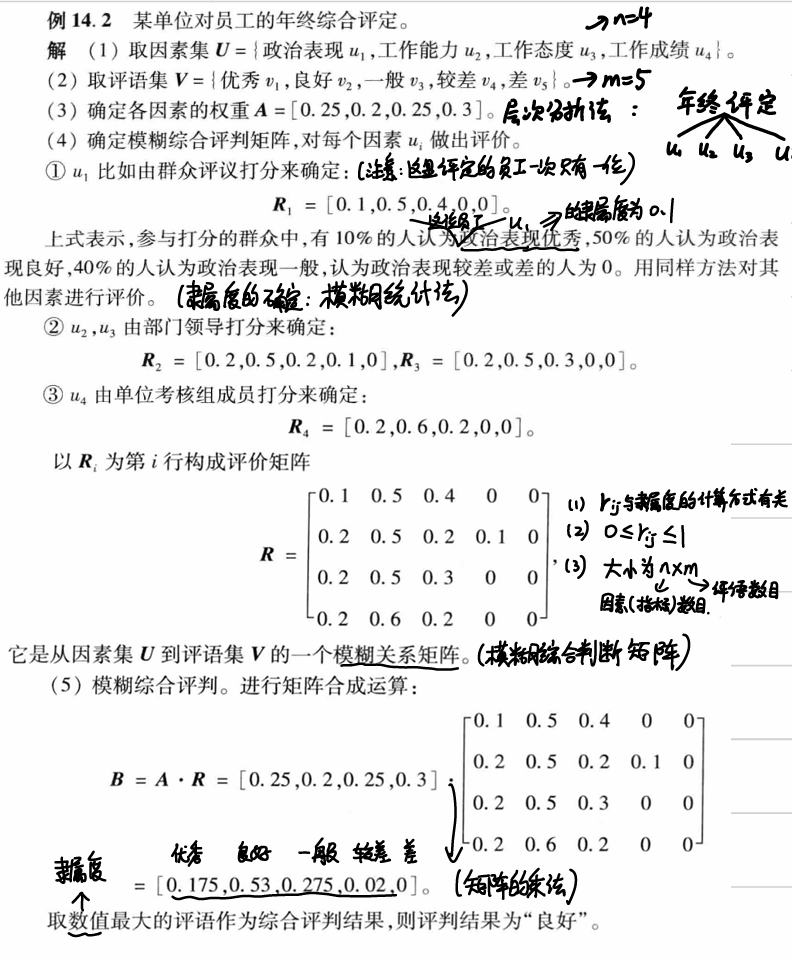 例 14.2 某单位对员工的年终综合评定。 → n=4
解 (1) 取因素集 U = {政治表现 u₁,工作能力 u₂,工作态度 u₃,工作成绩 u₄}。
(2) 取评语集 V = {优秀 v₁,良好 v₂,一般 v₃,较差 v₄,差 v₅}。→ m=5
(3) 确定各因素的权重 A = [0.25,0.2,0.25,0.3]。层次分析法: 年终评定
(4) 确定模糊综合评判矩阵,对每个因素 uᵢ 做出评价。 u₁ u₂ u₃ u
① u₁ 比如由群众评议打分来确定:(注意:这里评定的员工一次只有一位)
R₁ = [0.1,0.5,0.4,0,0]。
这位员工 u₁ → 的隶属度为 0.1
上式表示,参与打分的群众中,有 10% 的人认为政治表现优秀,50% 的人认为政治表
现良好,40% 的人认为政治表现一般,认为政治表现较差或差的人为 0。用同样方法对其
他因素进行评价。(隶属度的确定:模糊统计法)
② u₂,u₃ 由部门领导打分来确定:
R₂ = [0.2,0.5,0.2,0.1,0],R₃ = [0.2,0.5,0.3,0,0]。
③ u₄ 由单位考核组成员打分来确定:
R₄ = [0.2,0.6,0.2,0,0]。
以 Rᵢ 为第 i 行构成评价矩阵
0.1 0.5 0.4 0 0
0.2 0.5 0.2 0.1 0
R =
0.2 0.5 0.3 0 0
0.2 0.6 0.2 0 0
,
(1) rij与隶属度的计算方式有关
(2) 0≤rij≤1
(3) 大小为n×m → 评语数目
因素(指标)数目.
它是从因素集 U 到评语集 V 的一个模糊关系矩阵。(模糊综合判断矩阵)
(5) 模糊综合评判。进行矩阵合成运算:
0.1 0.5 0.4 0 0
0.2 0.5 0.2 0.1 0
B = A · R = [0.25,0.2,0.25,0.3] ·
0.2 0.5 0.3 0 0
0.2 0.6 0.2 0 0
优秀 良好 一般 较差 差
隶属度
= [0.175,0.53,0.275,0.02,0]。(矩阵的乘法)
取数值最大的评语作为综合评判结果,则评判结果为“良好”。